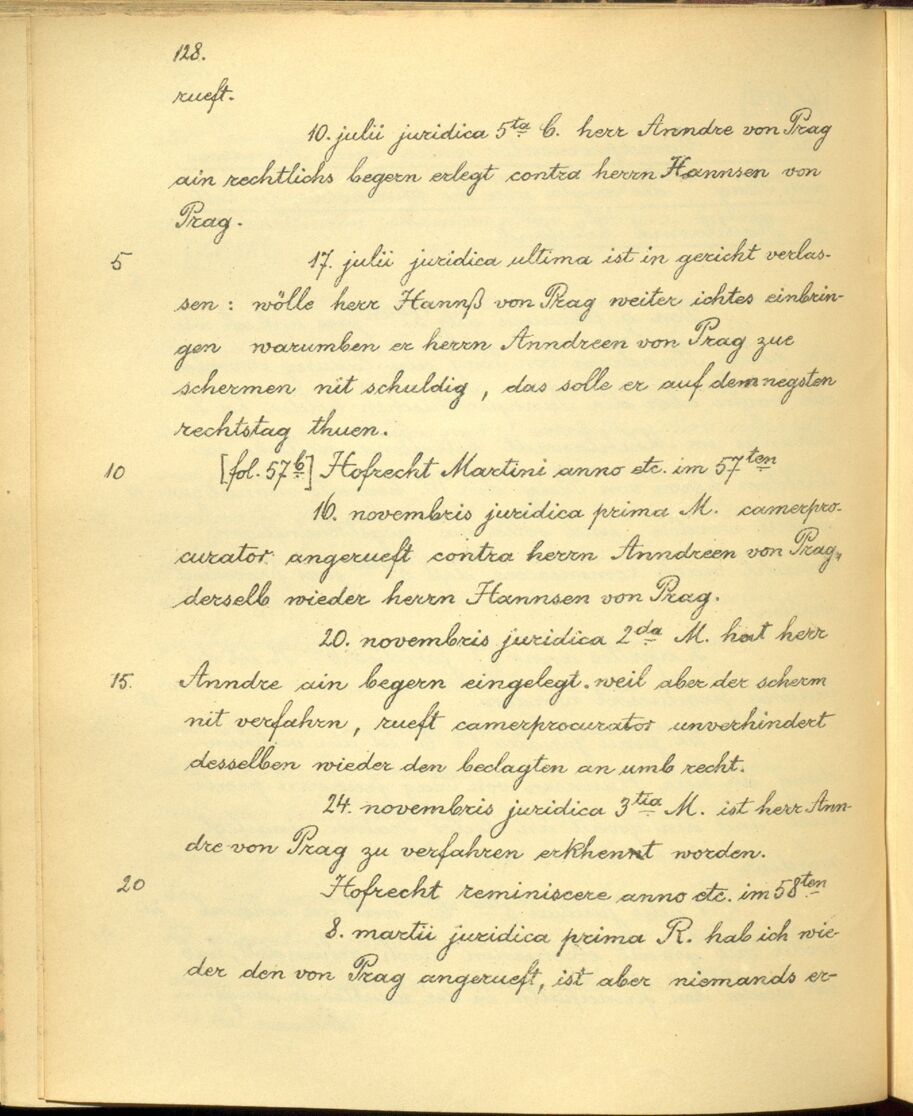 128.
rueft.
10. julii juridica 5ta C. herr Anndre von Prag
ain rechtlichs begern erlegt contra herrn Hannsen von
Prag.
5 17. julii juridica ultima ist in gericht verlas-
sen : wölle herr Hannß von Prag weiter ichtes einbrin-
gen warumben er herrn Anndreen von Prag zue
schermen nit schuldig, das solle er auf dem negsten
rechtstag thuen.
10 [fol. 57b] Hofrecht Martini anno etc. im 57ten
16. novembris juridica prima M. camerpro-
curator angerueft contra herrn Anndreen von Prag,
derselb wieder herrn Hannsen von Prag.
20. novembris juridica 2da M. hat herr
15. Anndre ain begern eingelegt. weil aber der scherm
nit verfahrn, rueft camerprocurator unverhindert
desselben wieder den beclagten an umb recht.
24. novembris juridica 3tia M. ist herr Ann-
dre von Prag zu verfahren erkhennt worden.
20 Hofrecht reminiscere anno etc. im 58ten
8. martii juridica prima R. hab ich wie-
der den von Prag angerueft, ist aber niemands er-